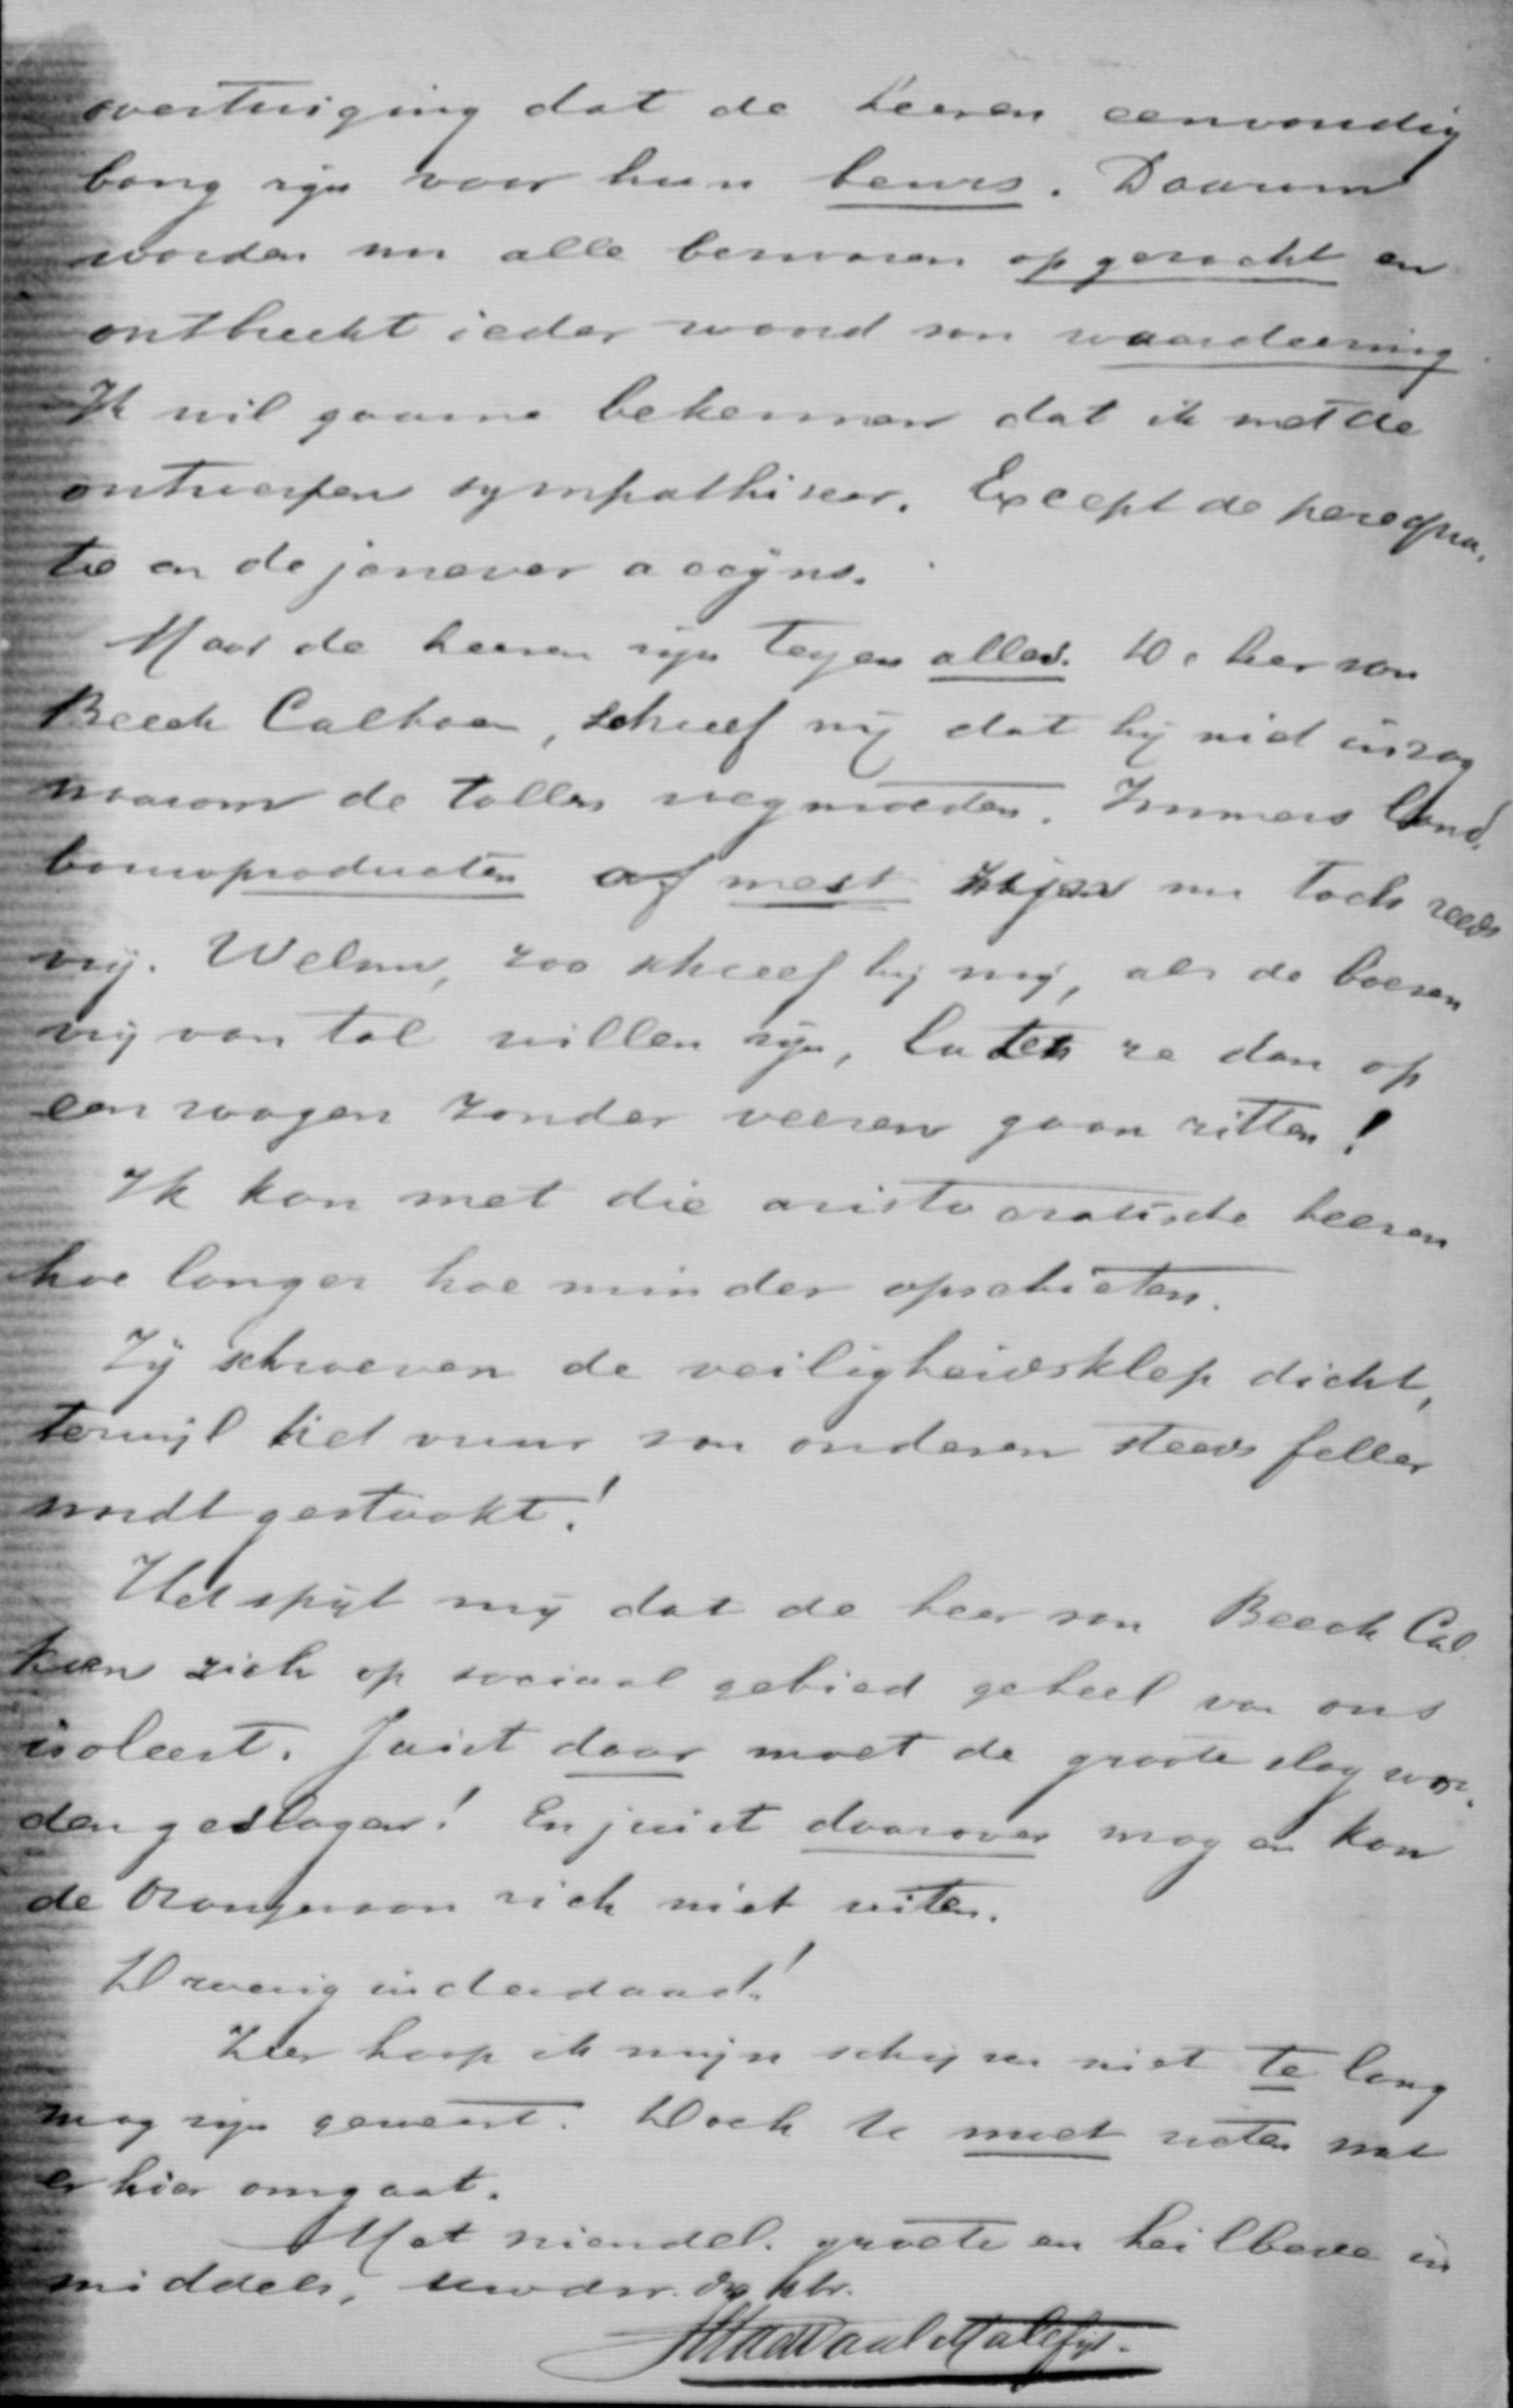 overtuiging dat de heeren eenvoudig
bang zijn voor hun beurs. Daarom
worden nu alle bezwaren opgezocht en
ontbreekt ieder woord van waardeering.
Ik wil gaarne bekennen dat ik met de
ontwerpen sympathiseer. Except de perequa-
tie en de jenever accijns.
Maar de heeren zijn tegen alles. De heer van
Beeck Calkoen, schreef mij dat hij niet inzag
waarom de tollen wegmoeten. Immers land-
bouwproducten of mest zijn nu toch reeds
vrij. Welnu, zoo schreef hij mij, als de boeren
vrij van tol willen zijn, laten ze dan op
een wagen zonder veeren gaan zitten!
Ik kan met die aristocratische heeren
hoe langer hoe minder opschieten.
Zij schroeven de veiligheidsklep dicht,
terwijl het vuur van onderen steeds feller
wordt gestookt!
Het spijt mij dat de heer van Beeck Cal-
koen zich op sociaal gebied geheel van ons
isoleert. Juist daar moet de groote slag wor-
den geslagen! En juist daarover mag en kan
de Oranjevaan zich niet uiten.
Droevig inderdaad!
Zeer hoop ik mijn schrijven niet te lang
mag zijn geweest. Doch U moet weten wat
er hier omgaat.
Met vriendel. groete en heilbede in-
middels, Uwdw. dr
de Waal Malefijt.